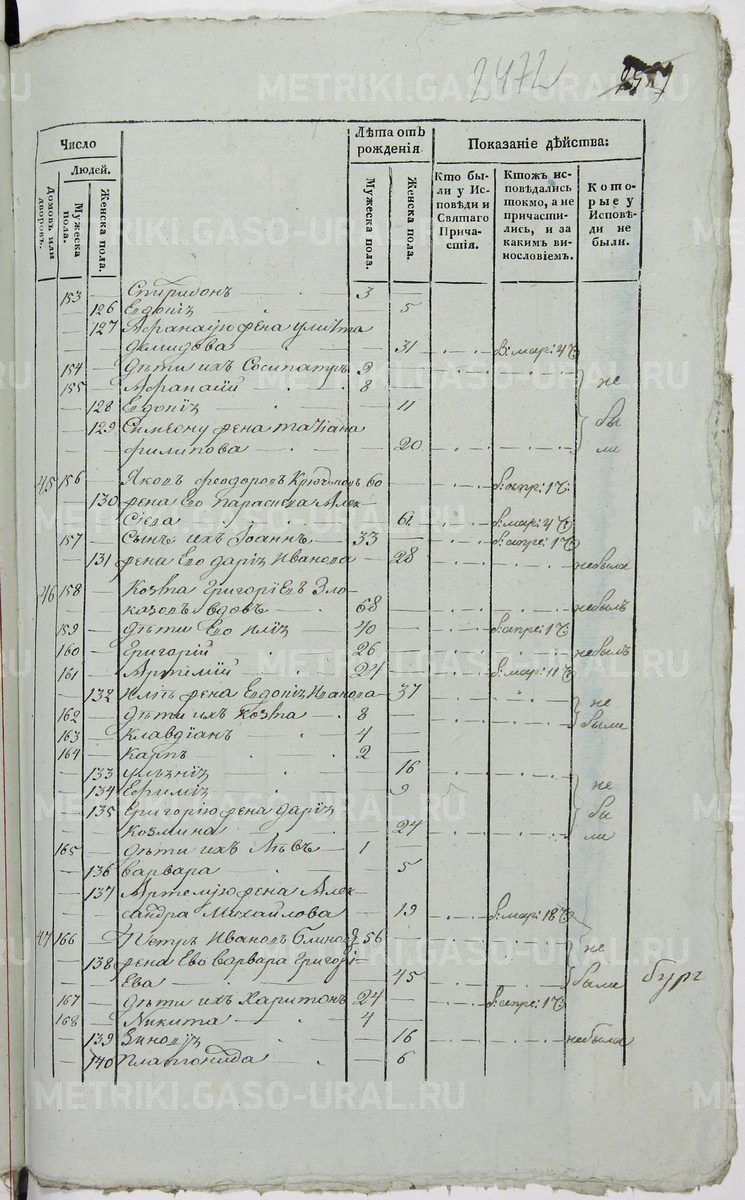 2472
Число
Лѣта отъ рожденія
Показаніе дѣйства:
Людей.
Домовъ или дворовъ.
Мужеска пола.
Женска пола.
Мужеска пола.
Женска пола.
Кто были у Исповѣди и Святаго Причастія.
Ктожъ исповѣдались токмо, а не причастились, и за какимъ винословіемъ.
Которые у Исповѣди не были.
153 — Спиридонъ — 3 —
— 126 Евдокія — 5
— 127 Афанасію жена Улита
Демидова — 31 в: мар: 4
— 154 — дѣти ихъ Сосипатръ 9 —
155 — Афанасій 8 — не
— 128 Евдокія — 11
— 129 Симеону жена Татіана бы
филипова — 20 ли
45 156 — Яковъ феодоровъ Крючковъ 60 апр: 17
— 130 жена Его Параскева Алек-
сіева — 61 мар: 4
157 — Сынъ ихъ Іоаннъ — 33 — апре: 17
— 131 жена Его дарія Иванова — 28 небыла
46 158 — Козма Григоріевъ Зло-
казовъ вдовъ — 68 — небылъ
159 — дѣти Его Илія — 40 — апре: 17
160 — Григорій 26 — небылъ
161 — Артемій — 24 — мар: 11
— 132 Иліѣ жена Евдокія Иванова — 37 не
162 — дѣти ихъ Козма — 8 — были
163 — Клавдіанъ — 4 —
164 — Карпъ 2 —
— 133 Уліанія — 16
— 134 Ефимія — 9 не
— 135 Григорію жена дарія бы
Козмина — 24 ли
165 — дѣти ихъ Львъ — 1 —
— 136 Варвара — 5
— 137 Артемію жена Алек-
сандра Михайлова — 19 мар: 18
47 166 — Петръ Ивановъ Блиновъ 56 — не
— 138 жена Его Варвара Григорі-
Ева — 45 были бург
167 — дѣти ихъ Харитонъ 24 — апре: 17
168 — Никита — 4 —
— 139 — 16 небыла
— 140 Платонида — 6
METRIKI.GASO-URAL.RU